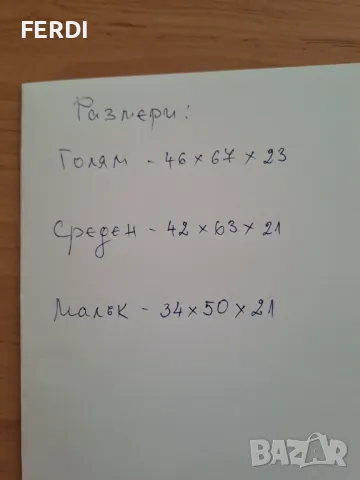 FERDI
Размери:
Голям - 46 x 67 x 23
Среден - 42 x 63 x 21
Малък - 34 x 50 x 21
BAZAR